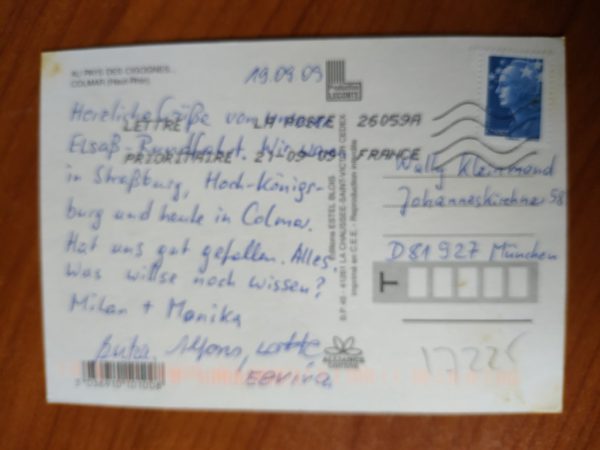 AU PAYS DES CIGOGNES...
COLMAR (Haut-Rhin)
19.09.09
Herzliche Grüße von unserer
Elsaß-Rundfahrt. Wir waren
in Straßburg, Hoch-Königs-
burg und heute in Colmar.
Hat uns gut gefallen. Alles.
Was willse noch wissen?
Milan + Monika
Alfons, Lotte
LETTRE LA POSTE 26059A
PRIORITAIRE 21-09-09 FRANCE
Editions ESTEL BLOIS
B.P. 45 - 41261 LA CHAUSSEE-SAINT-VICTOR CEDEX
Imprimé en C.E.E. - Reproduction interdite
Wally
D 81927 München
T
17225